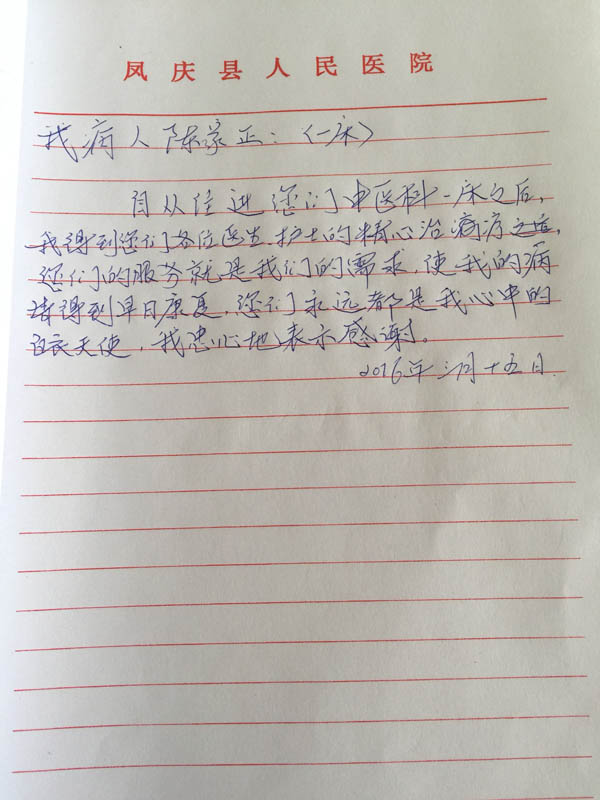 凤庆县人民医院
我病人陈家正：〈一床〉
自从住进您们中医科一床之后，
我得到您们各位医生护士的精心治疗之后，
您们的服务就是我们的需求，使我的病
情得到早日康复，您们永远都是我心中的
白衣天使，我忠心地表示感谢。
2016年三月十五日